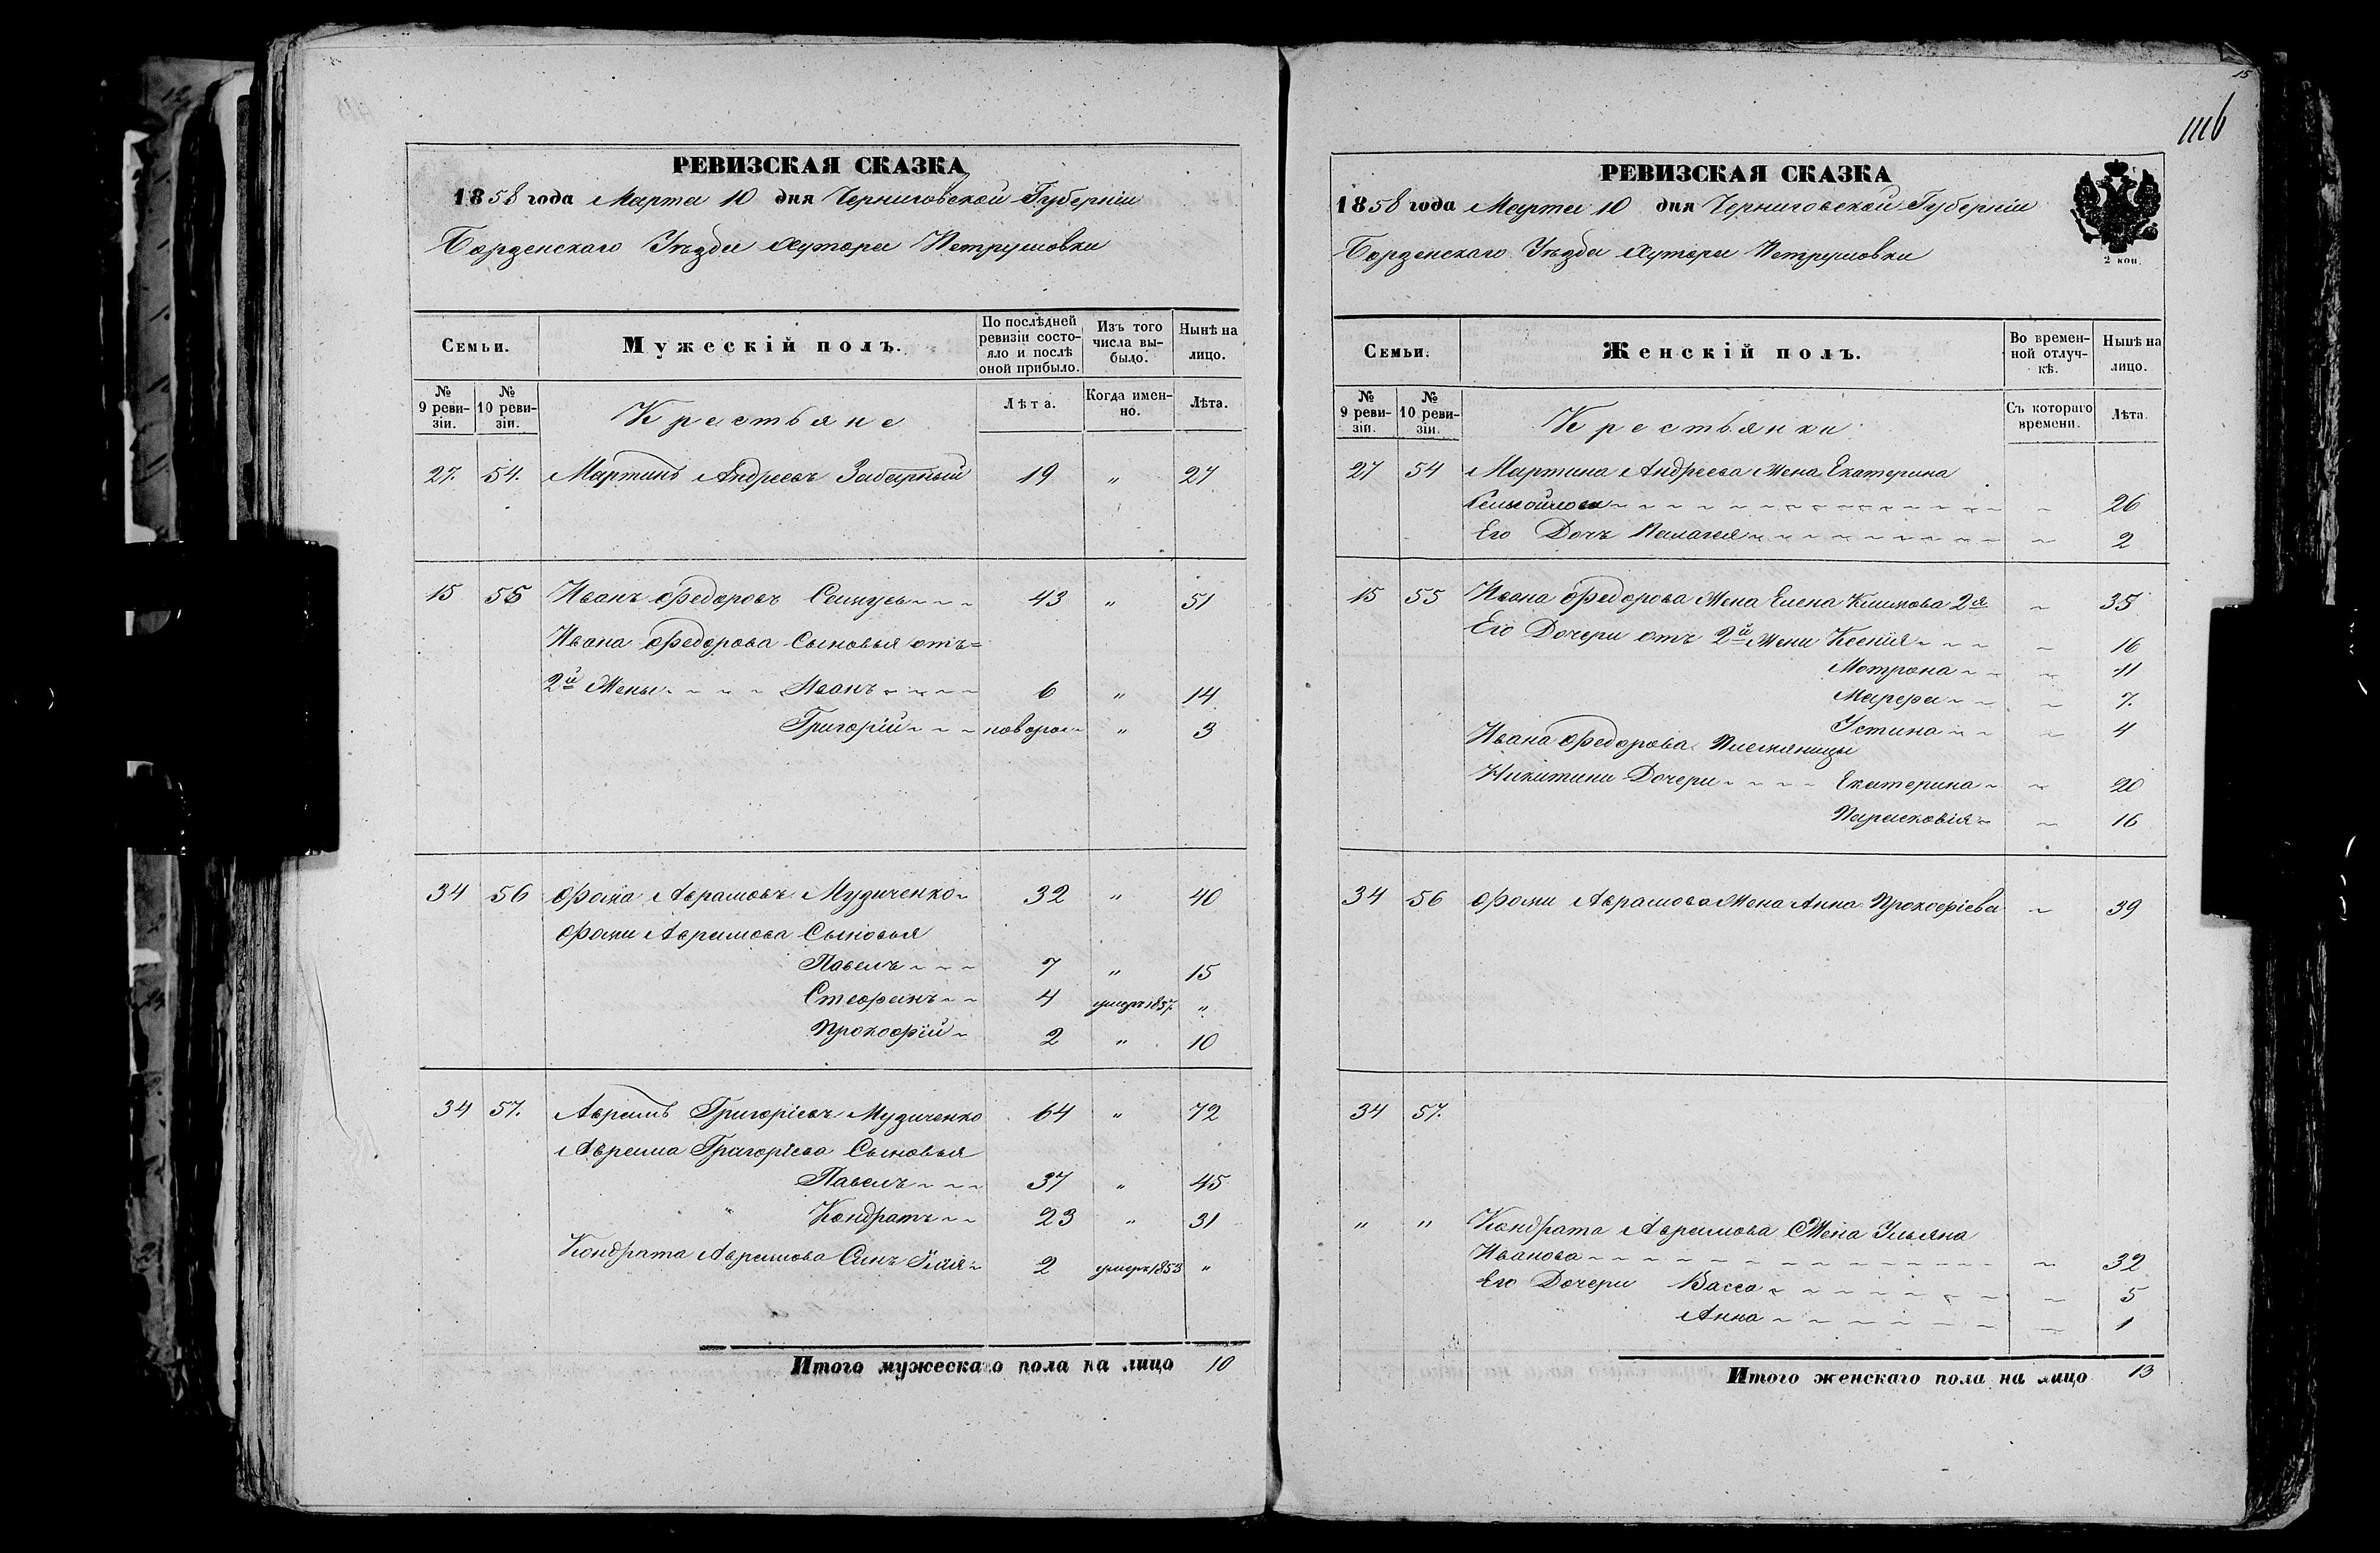 РЕВИЗСКАЯ СКАЗКА
1858 года Марта 10 дня Черниговской Губерніи
Борзенскаго Уѣзда Хутора Петрушовки
Семьи.
Мужескій полъ.
По послѣдней ревизіи состояло и послѣ оной прибыло.
Изъ того числа выбыло.
Нынѣ на лицо.
№ 9 ревизіи.
№ 10 ревизіи.
Крестьяне
Лѣта.
Когда именно.
Лѣта.
27. 54. Мартинъ Андреевъ Забарный 19 " 27
15 55 Иванъ Федоровъ 43 " 51
Ивана Федорова Сыновья отъ=
2й Жены Иванъ 6 " 14
Григорій новорож " 3
34 56 Фома Аврамовъ Музиченко 32 " 40
Фомы Аврамова Сыновья
Павелъ 7 " 15
Стефанъ 4 умеръ 1857. "
Прокофій 2 " 10
34 57. Аврамъ Григоріевъ Музиченко 64 " 72
Аврама Григоріева Сыновья
Павелъ 37 " 45
" Кондратъ 23 " 31
Кондрата Аврамова Сынъ Илія 2 умеръ 1853 "
Итого мужескаго пола на лицо 10
15
1116
РЕВИЗСКАЯ СКАЗКА
1858 года Марта 10 дня Черниговской Губерніи
Борзенскаго Уѣзда Хутора Петрушовки
2 коп.
Семьи.
Женскій полъ.
Во временной отлучкѣ.
Нынѣ на лицо.
№ 9 ревизіи.
№ 10 ревизіи.
Крестьянки
Съ котораго времени.
Лѣта
27 54 Мартина Андреева Жена Екатерина
26
Его Дочь Палагея 2
15 55 Ивана Федорова Жена Елена Климова 2я 35
Его Дочери отъ 2й Жены Ксенія 16
Мотрона 11
Марфа 7.
Устина 4
Ивана Федорова Племяницы
Никитины Дочери Екатерина 20
Парасковія 16
34 56 Фомы Аврамова Жена Анна Прокофіева 39
34 57.
" " Кондрата Аврамова Жена Ульяна
Иванова 32
Его Дочери Васса 5
Анна 1
Итого женскаго пола на лицо 13